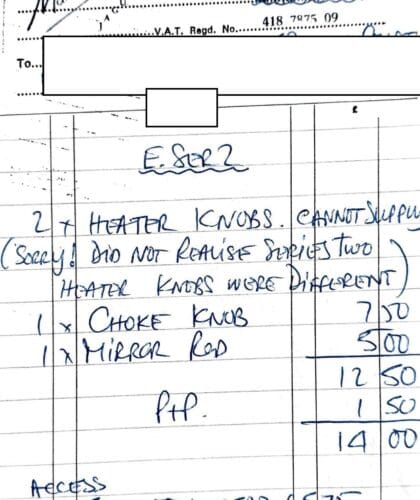 V.A.T. Regd. No. 418 7875 09
To
£
E. SER 2
2 x HEATER KNOBS. CANNOT SUPPLY
(SORRY! DID NOT REALISE SERIES TWO
HEATER KNOBS WERE DIFFERENT)
1 x CHOKE KNOB 7 50
1 x MIRROR ROD 5 00
12 50
P+P. 1 50
14 00
ACCESS